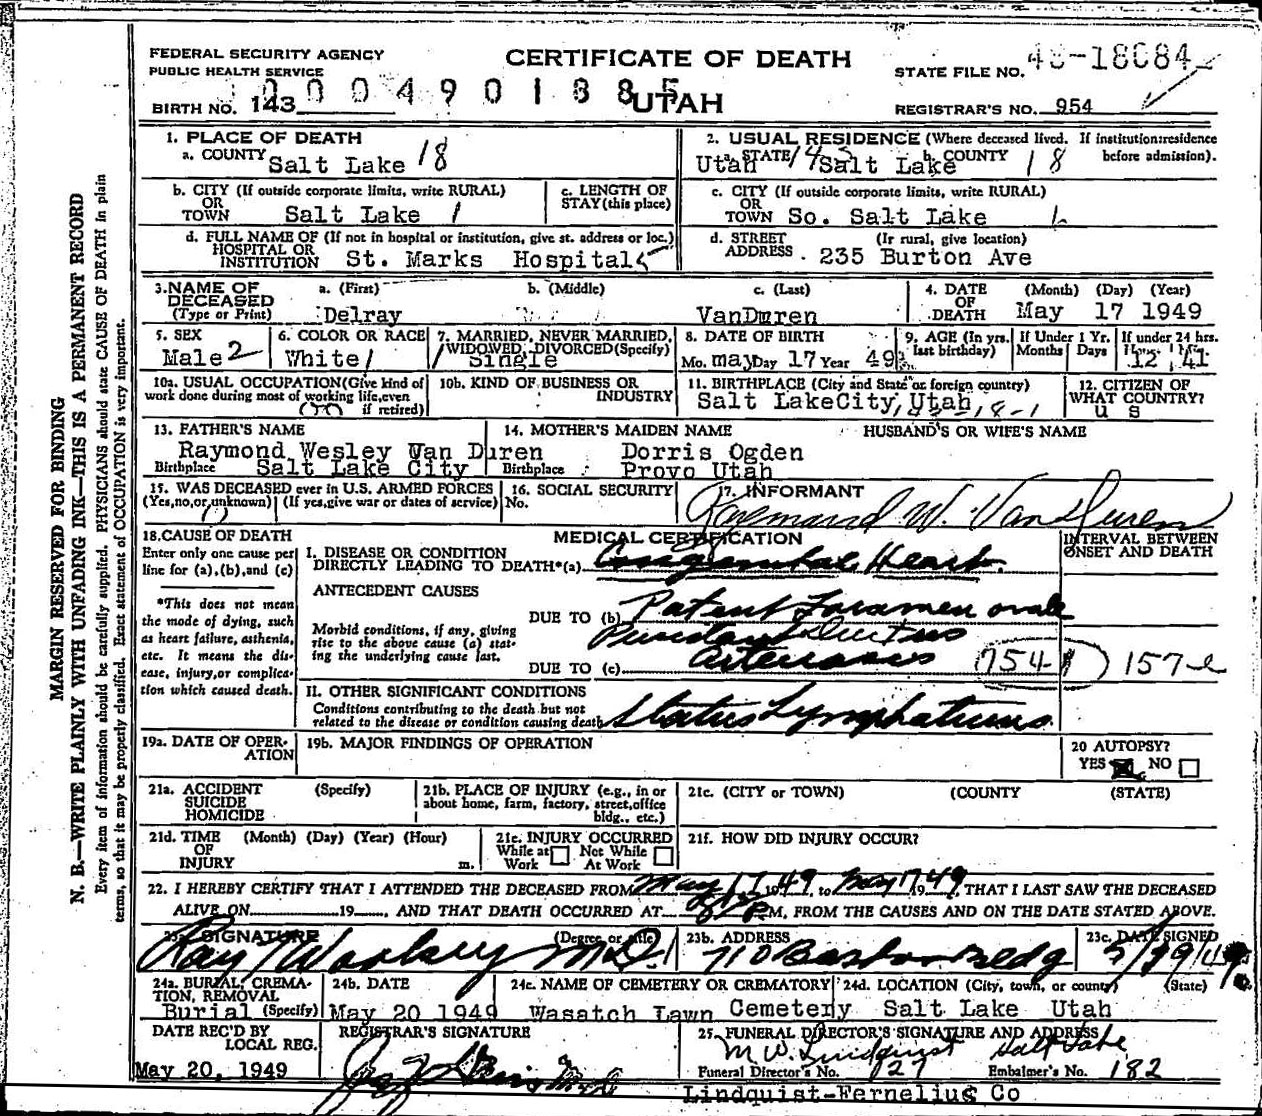 FEDERAL SECURITY AGENCY
PUBLIC HEALTH SERVICE
CERTIFICATE OF DEATH
STATE FILE NO.
BIRTH NO. 143
UTAH
REGISTRAR'S NO. 954
MARGIN RESERVED FOR BINDING
N. B.—WRITE PLAINLY WITH UNFADING INK—THIS IS A PERMANENT RECORD
Every item of information should be carefully supplied. PHYSICIANS should state CAUSE OF DEATH in plain
terms, so that it may be properly classified. Exact statement of OCCUPATION is very important.
1. PLACE OF DEATH
a. COUNTY Salt Lake 18
2. USUAL RESIDENCE (Where deceased lived. If institution:residence before admission).
a. STATE Utah b. COUNTY Salt Lake 18
b. CITY (If outside corporate limits, write RURAL) OR TOWN Salt Lake 1
c. LENGTH OF STAY (this place)
c. CITY (If outside corporate limits, write RURAL) OR TOWN So. Salt Lake
d. FULL NAME OF (If not in hospital or institution, give st. address or loc.) HOSPITAL OR INSTITUTION St. Marks Hospital
d. STREET ADDRESS (Ir rural, give location) 235 Burton Ave
3. NAME OF DECEASED (Type or Print)
a. (First) Delray
b. (Middle)
c. (Last) VanDuren
4. DATE OF DEATH (Month) (Day) (Year) May 17 1949
5. SEX Male 2
6. COLOR OR RACE White 1
7. MARRIED, NEVER MARRIED, WIDOWED, DIVORCED (Specify) Single
8. DATE OF BIRTH Mo. May Day 17 Year 49
9. AGE (In yrs. last birthday)
If Under 1 Yr. Months Days
If under 24 hrs. 12 41
10a. USUAL OCCUPATION (Give kind of work done during most of working life, even if retired)
10b. KIND OF BUSINESS OR INDUSTRY
11. BIRTHPLACE (City and State or foreign country) Salt LakeCity, Utah
12. CITIZEN OF WHAT COUNTRY? U S
13. FATHER'S NAME Raymond Wesley Van Duren
Birthplace Salt Lake City
14. MOTHER'S MAIDEN NAME Dorris Ogden
Birthplace Provo Utah
HUSBAND'S OR WIFE'S NAME
15. WAS DECEASED ever in U.S. ARMED FORCES (Yes, no, or unknown) (If yes, give war or dates of service)
16. SOCIAL SECURITY No.
17. INFORMANT Raymond W. VanDuren
18. CAUSE OF DEATH
Enter only one cause per line for (a), (b), and (c)
*This does not mean the mode of dying, such as heart failure, asthenia, etc. It means the disease, injury, or complication which caused death.
MEDICAL CERTIFICATION
INTERVAL BETWEEN ONSET AND DEATH
I. DISEASE OR CONDITION DIRECTLY LEADING TO DEATH*(a) Congenital Heart.
ANTECEDENT CAUSES
Morbid conditions, if any, giving rise to the above cause (a) stating the underlying cause last.
DUE TO (b) Patent Foramen ovale
Ductus
DUE TO (c) arteriosus 754 157-e
II. OTHER SIGNIFICANT CONDITIONS
Conditions contributing to the death but not related to the disease or condition causing death Status Lymphaticus
19a. DATE OF OPERATION
19b. MAJOR FINDINGS OF OPERATION
20 AUTOPSY? YES NO
21a. ACCIDENT SUICIDE HOMICIDE (Specify)
21b. PLACE OF INJURY (e.g., in or about home, farm, factory, street, office bldg., etc.)
21c. (CITY or TOWN) (COUNTY) (STATE)
21d. TIME OF INJURY (Month) (Day) (Year) (Hour) m.
21e. INJURY OCCURRED While at Work Not While At Work
21f. HOW DID INJURY OCCUR?
22. I HEREBY CERTIFY THAT I ATTENDED THE DECEASED FROM May 17 1949, to May 17 1949, THAT I LAST SAW THE DECEASED
ALIVE ON 19, AND THAT DEATH OCCURRED AT P.M. FROM THE CAUSES AND ON THE DATE STATED ABOVE.
23a. SIGNATURE (Degree or title) Ray Woolsey M.D.
23b. ADDRESS 710 Boston Bldg
23c. DATE SIGNED
24a. BURIAL, CREMATION, REMOVAL (Specify) Burial
24b. DATE May 20 1949
24c. NAME OF CEMETERY OR CREMATORY Wasatch Lawn Cemetery
24d. LOCATION (City, town, or county) (State) Salt Lake Utah
DATE REC'D BY LOCAL REG. May 20, 1949
REGISTRAR'S SIGNATURE
25. FUNERAL DIRECTOR'S SIGNATURE AND ADDRESS
M W. Lindquist Salt Lake
Funeral Director's No. 127 Embalmer's No. 182
Lindquist-Fernelius Co